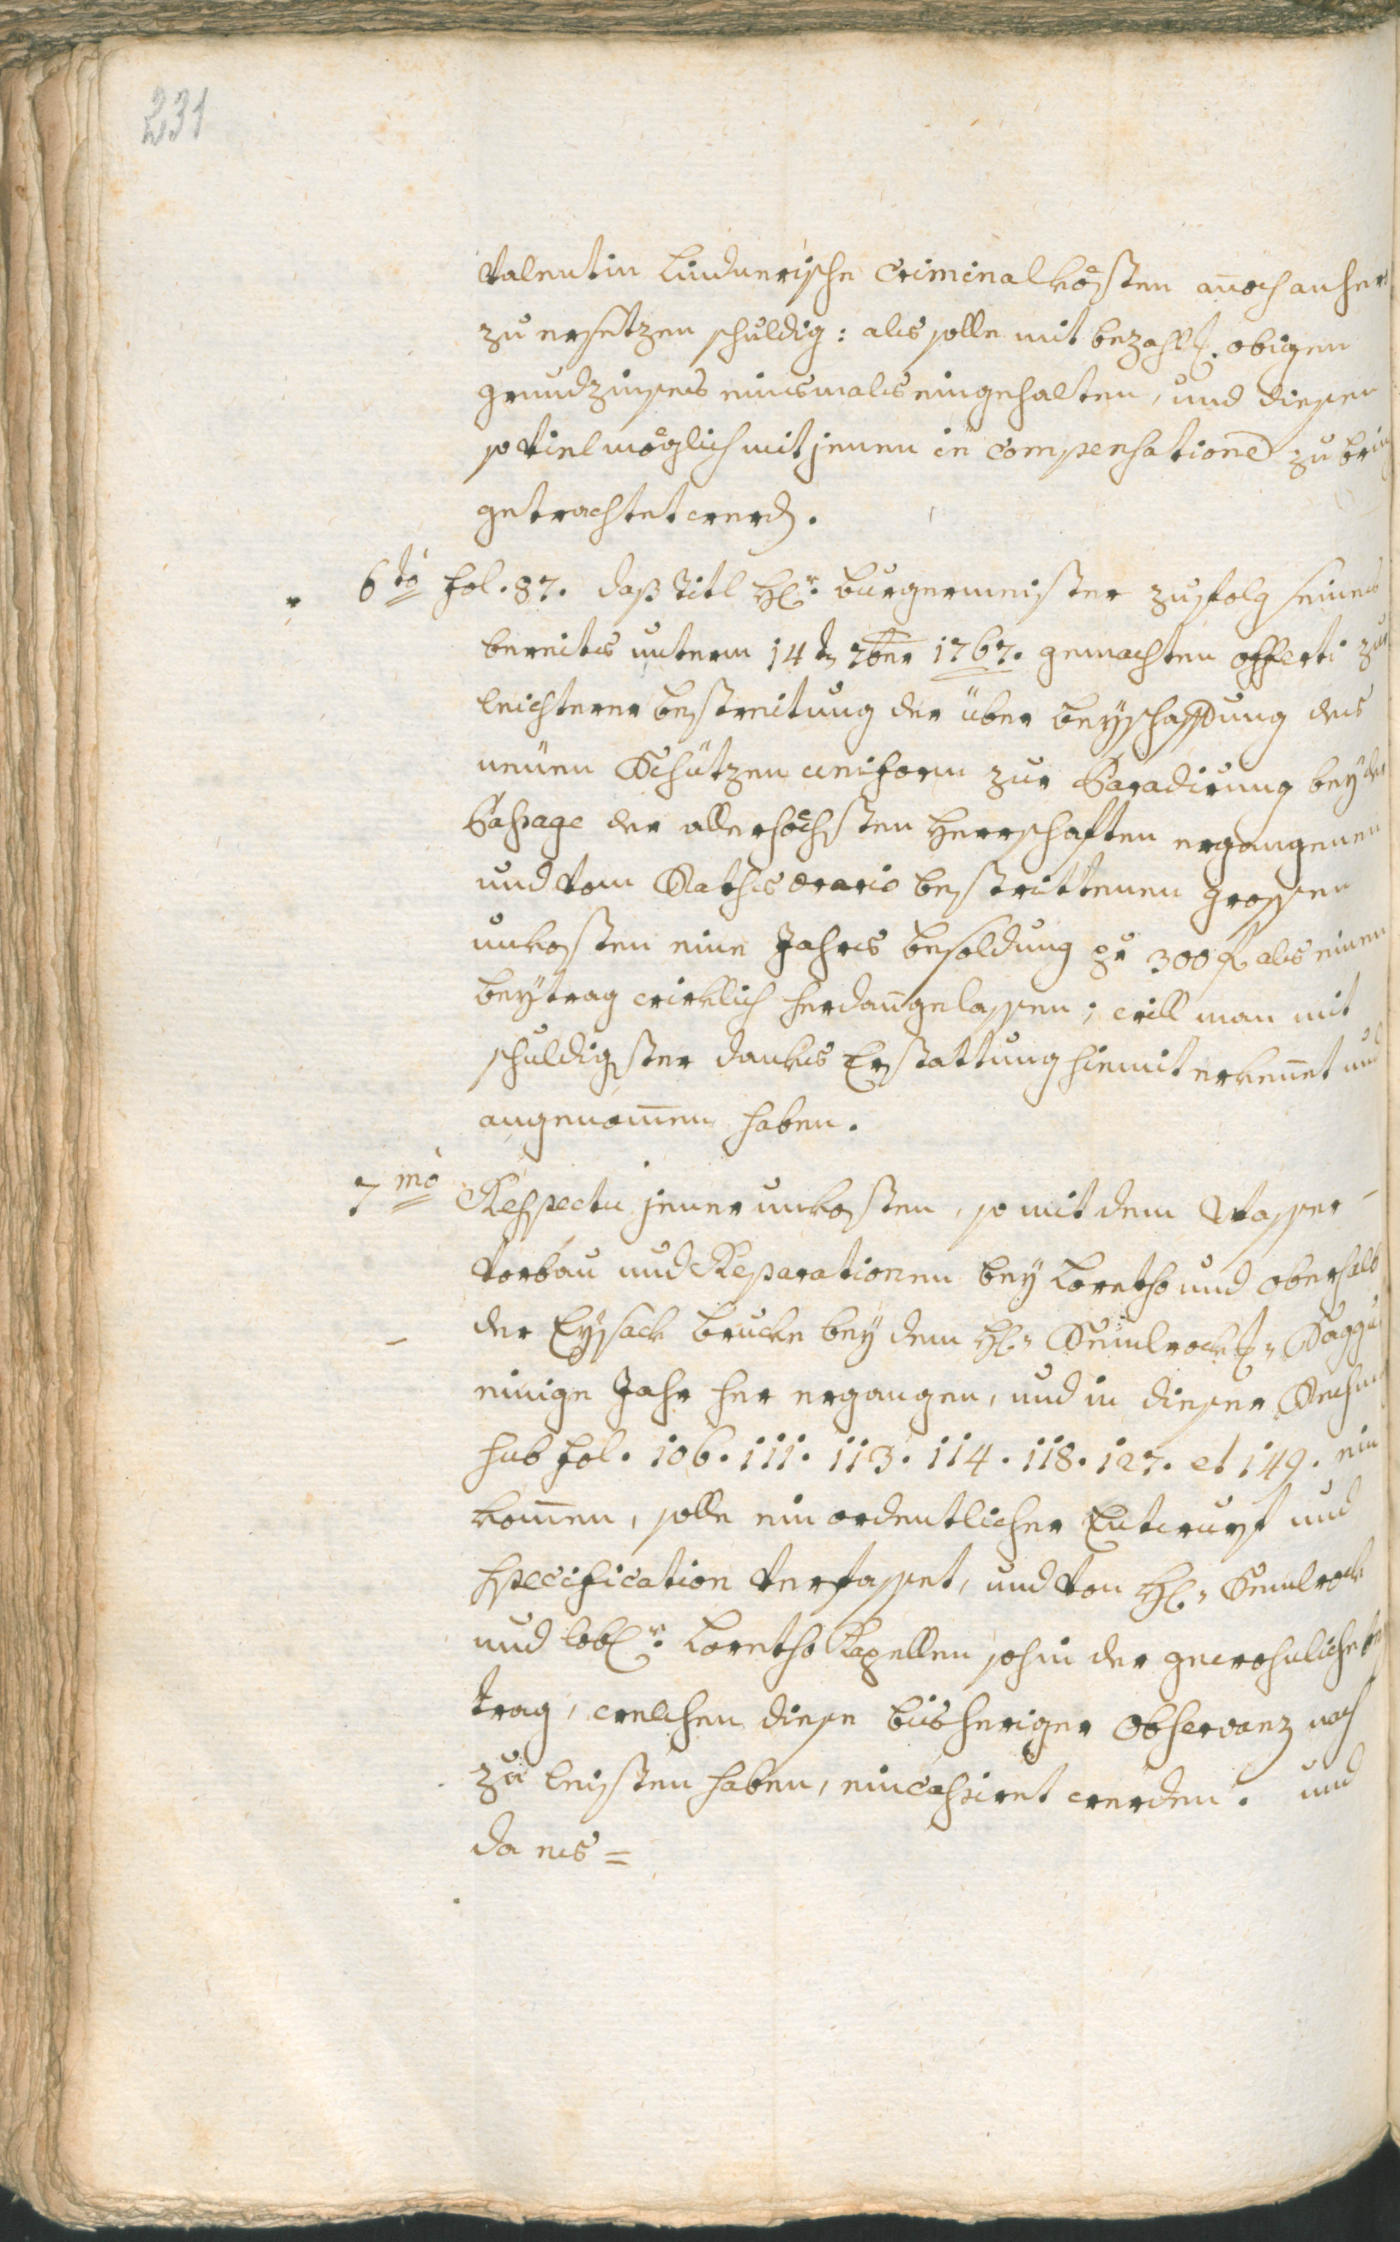 231
Valentin Lindnerische Criminalkösten añoch anhero
zu ersetzen schuldig: als solle mit bezahlg. obigen
grundzinsens einsmals eingehalten, und diesen
so viel möglich mit jenem in Compensatione zu bring
getrachtet werdn.
6to fol. 87. daß Titl Hr. burgermeister zufolg seines
bereits unterm 14tn 7ber 1767. gemachten offerti zu
leichterer bestreitung der über beyschaffung des
neüen Schützen uniform zur Paradirung bey der
Passage der allerhöchsten Herrschaften ergangenen
und vom Raths ærario bestrittenen grossen
unkosten eine Jahrs besoldung per 300 fl. als einen
beytrag wirklich herdañgelassen; will man mit
schuldigster danks Erstattung hiemit erkeñet und
angenom̄en haben.
7mo Respectu jener unkosten, so mit dem Wasser-
vorbau und Reparationen bey Loretho und oberhalb
der Eysack Brucke bey dem H:
einige Jahr her ergangen, und in dieser
sub fol. 106. 111. 113. 114. 118. 127. et 149. ein
kom̄en, solle ein ordentlicher Entwurf und
specification verfasset, und von H:
und lobl.r Loretho Kapellen sohin der gewohnliche bey
trag, welchen diese bisheriger Observanz nach
zu leisten haben, eincassiret werden. und
da es =